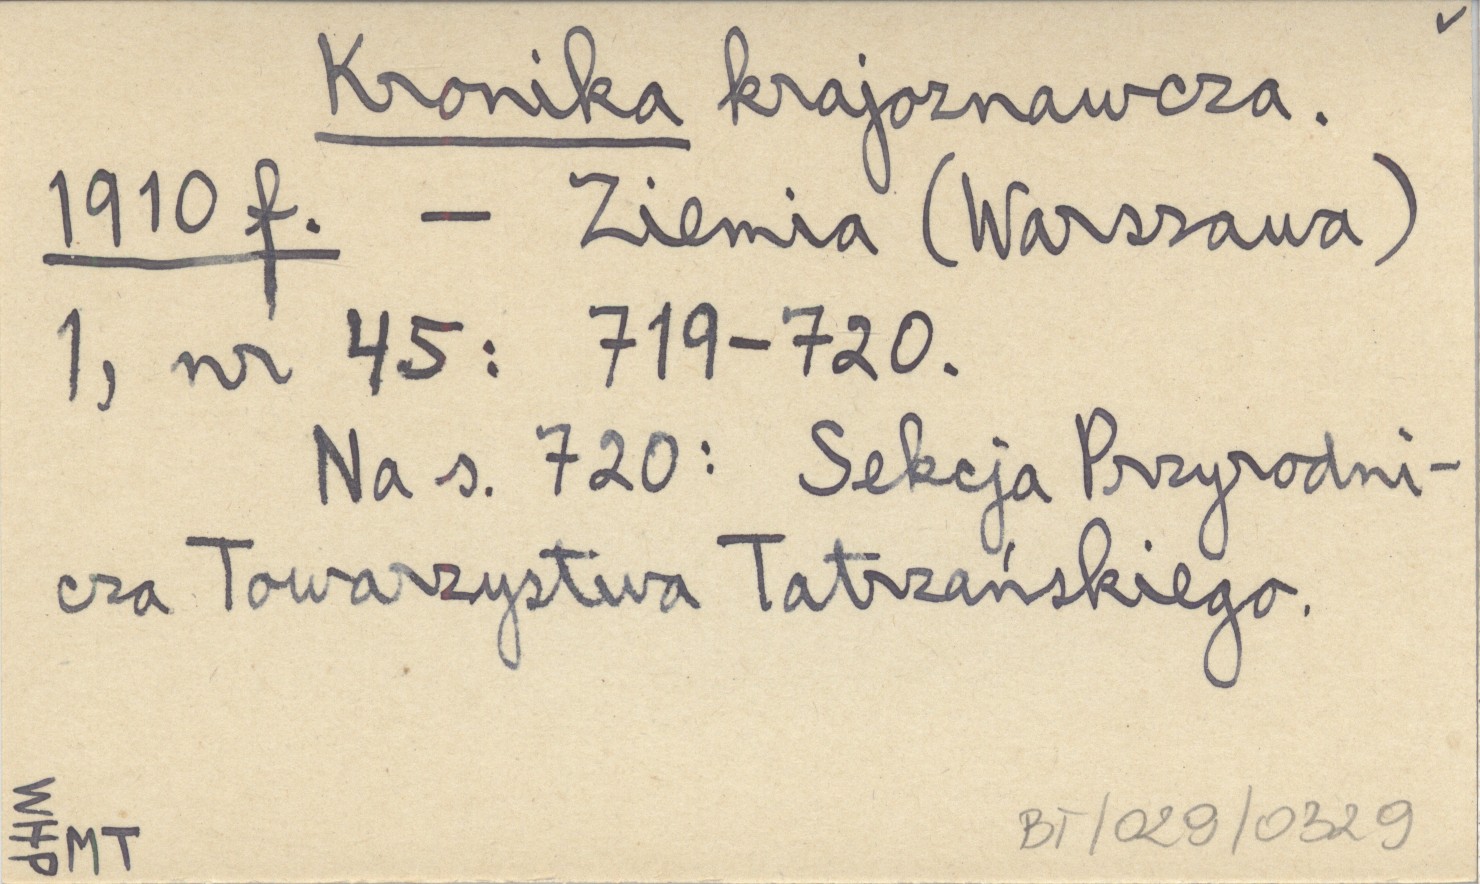 Kronika krajoznawcza.
1910 f. – Ziemia (Warszawa)
1, nr 45: 719–720.
Na s. 720: Sekcja Przyrodni-
cza Towarzystwa Tatrzańskiego.
WHP
MT
BT/029/0329